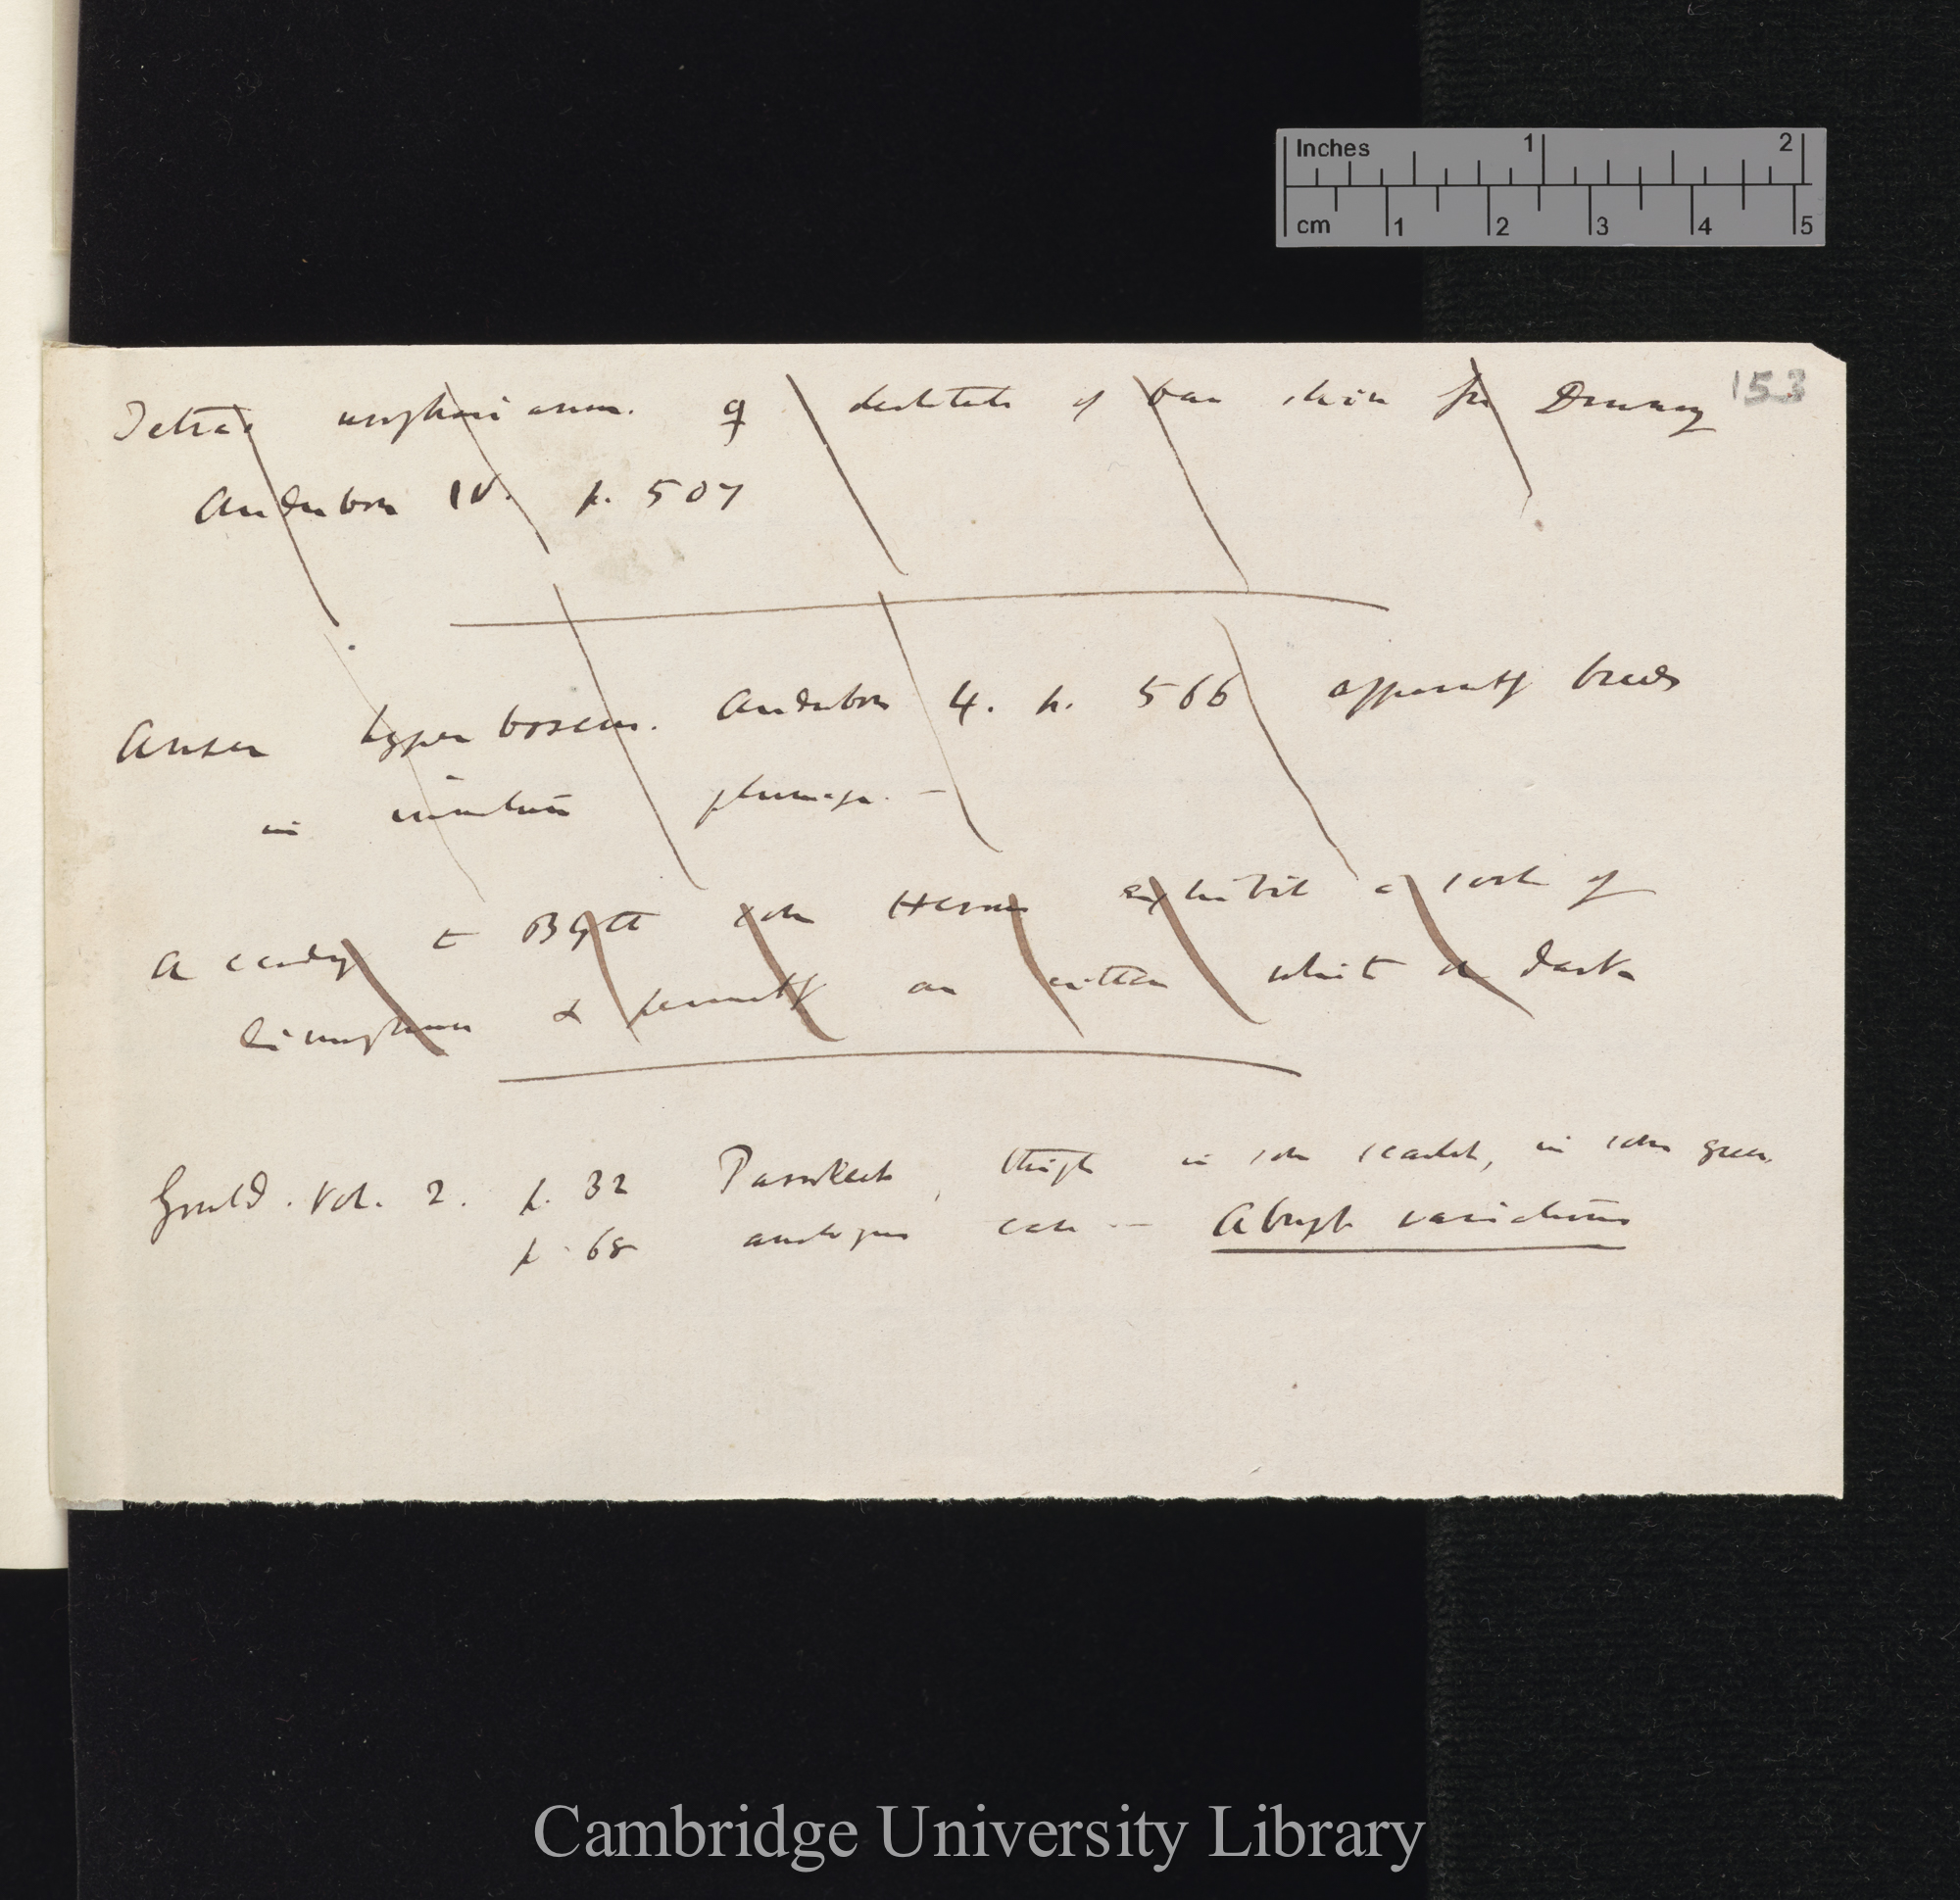 Inches 1 2
cm 1 2 3 4 5
153
Tetrao urophasianum. ♀ destitute of bare skin for Drumming
Audubon IV. p. 507
Anser hyperboreus. Audubon 4. p. 566 apparently breeds
in immature plumage. —
According to Blyth some Herons exhibit a sort of
dimorphism & permanently are either white or dark
Gould. Vol. 2. p. 32 Parrakeets, thighs in some scarlet, in some green,
p. 68 analogous case — Abrupt variations
Cambridge University Library